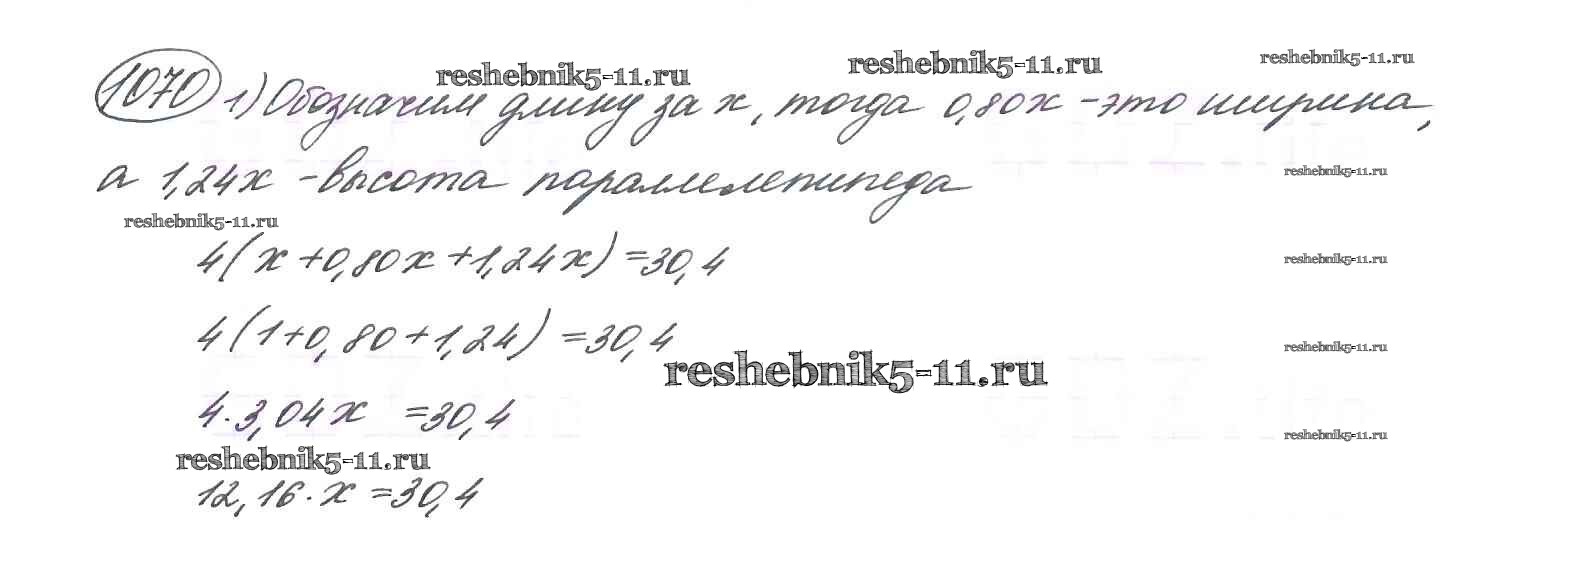 reshebnik5-11.ru
reshebnik5-11.ru
reshebnik5-11.ru
1070 1) Обозначим длину за x, тогда 0,80x - это ширина,
а 1,24x - высота параллелепипеда
reshebnik5-11.ru
reshebnik5-11.ru
4(x+0,80x+1,24x)=30,4
reshebnik5-11.ru
4(1+0,80+1,24)=30,4
reshebnik5-11.ru
reshebnik5-11.ru
4·3,04x =30,4
reshebnik5-11.ru
reshebnik5-11.ru
12,16·x=30,4